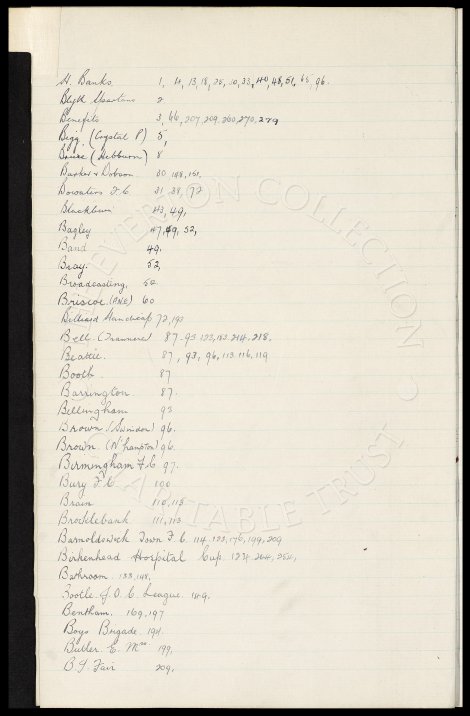 H. Banks 1, 4, 13, 18, 25, 30, 33, 40, 48, 51, 65, 96.
Blyth Spartans 2
Benefits 3, 66, 207, 209, 260, 270, 279
Begg. (Crystal P) 5,
Bruce (Hebburn) 8
Barker & Dobson 30 148, 151,
Bowaters F.C. 31, 38, 72
Blackburn 43, 49,
Bagley 47, 49, 52,
Band 49.
Bray. 52,
Broadcasting. 52
Briscoe. (PNE) 60
Billiard Handicap 72, 192
Bell. (Tranmere) 87. 95 123, 182, 214. 218.
Beattie. 87, 93, 96, 113. 116, 119
Booth. 87
Barrington 87.
Bellingham 93
Brown (Swindon) 96.
Brown. (N'hampton) 96.
Birmingham F.C 97.
Bury F.C. 100
Brain 110, 113
Brocklebank 111, 113
Barnoldswick Town F.C. 114, 123, 176, 199, 209
Birkenhead Hospital Cup. 124, 204, 254,
Bathroom. 133, 148,
Bootle J.O.C. League. 149.
Bentham. 169, 197
Boys Brigade. 194.
Butler. E. Mrs 199,
B.I. Fair 209.
EVERTON COLLECTION
CHARITABLE TRUST